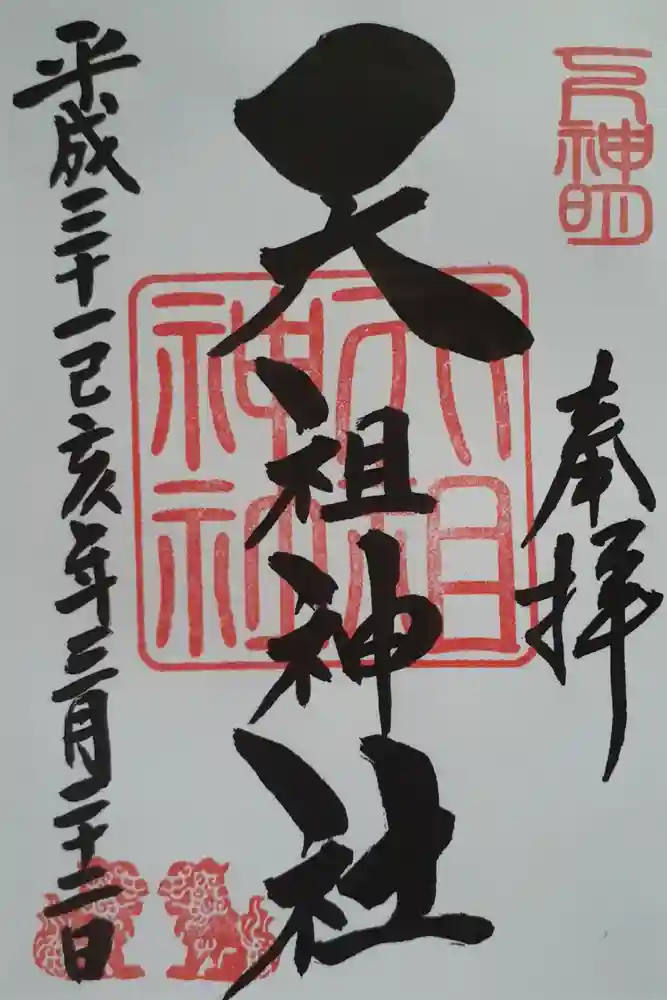 奉拝
天祖神社
平成三十一己亥年三月二十二日
天祖神社